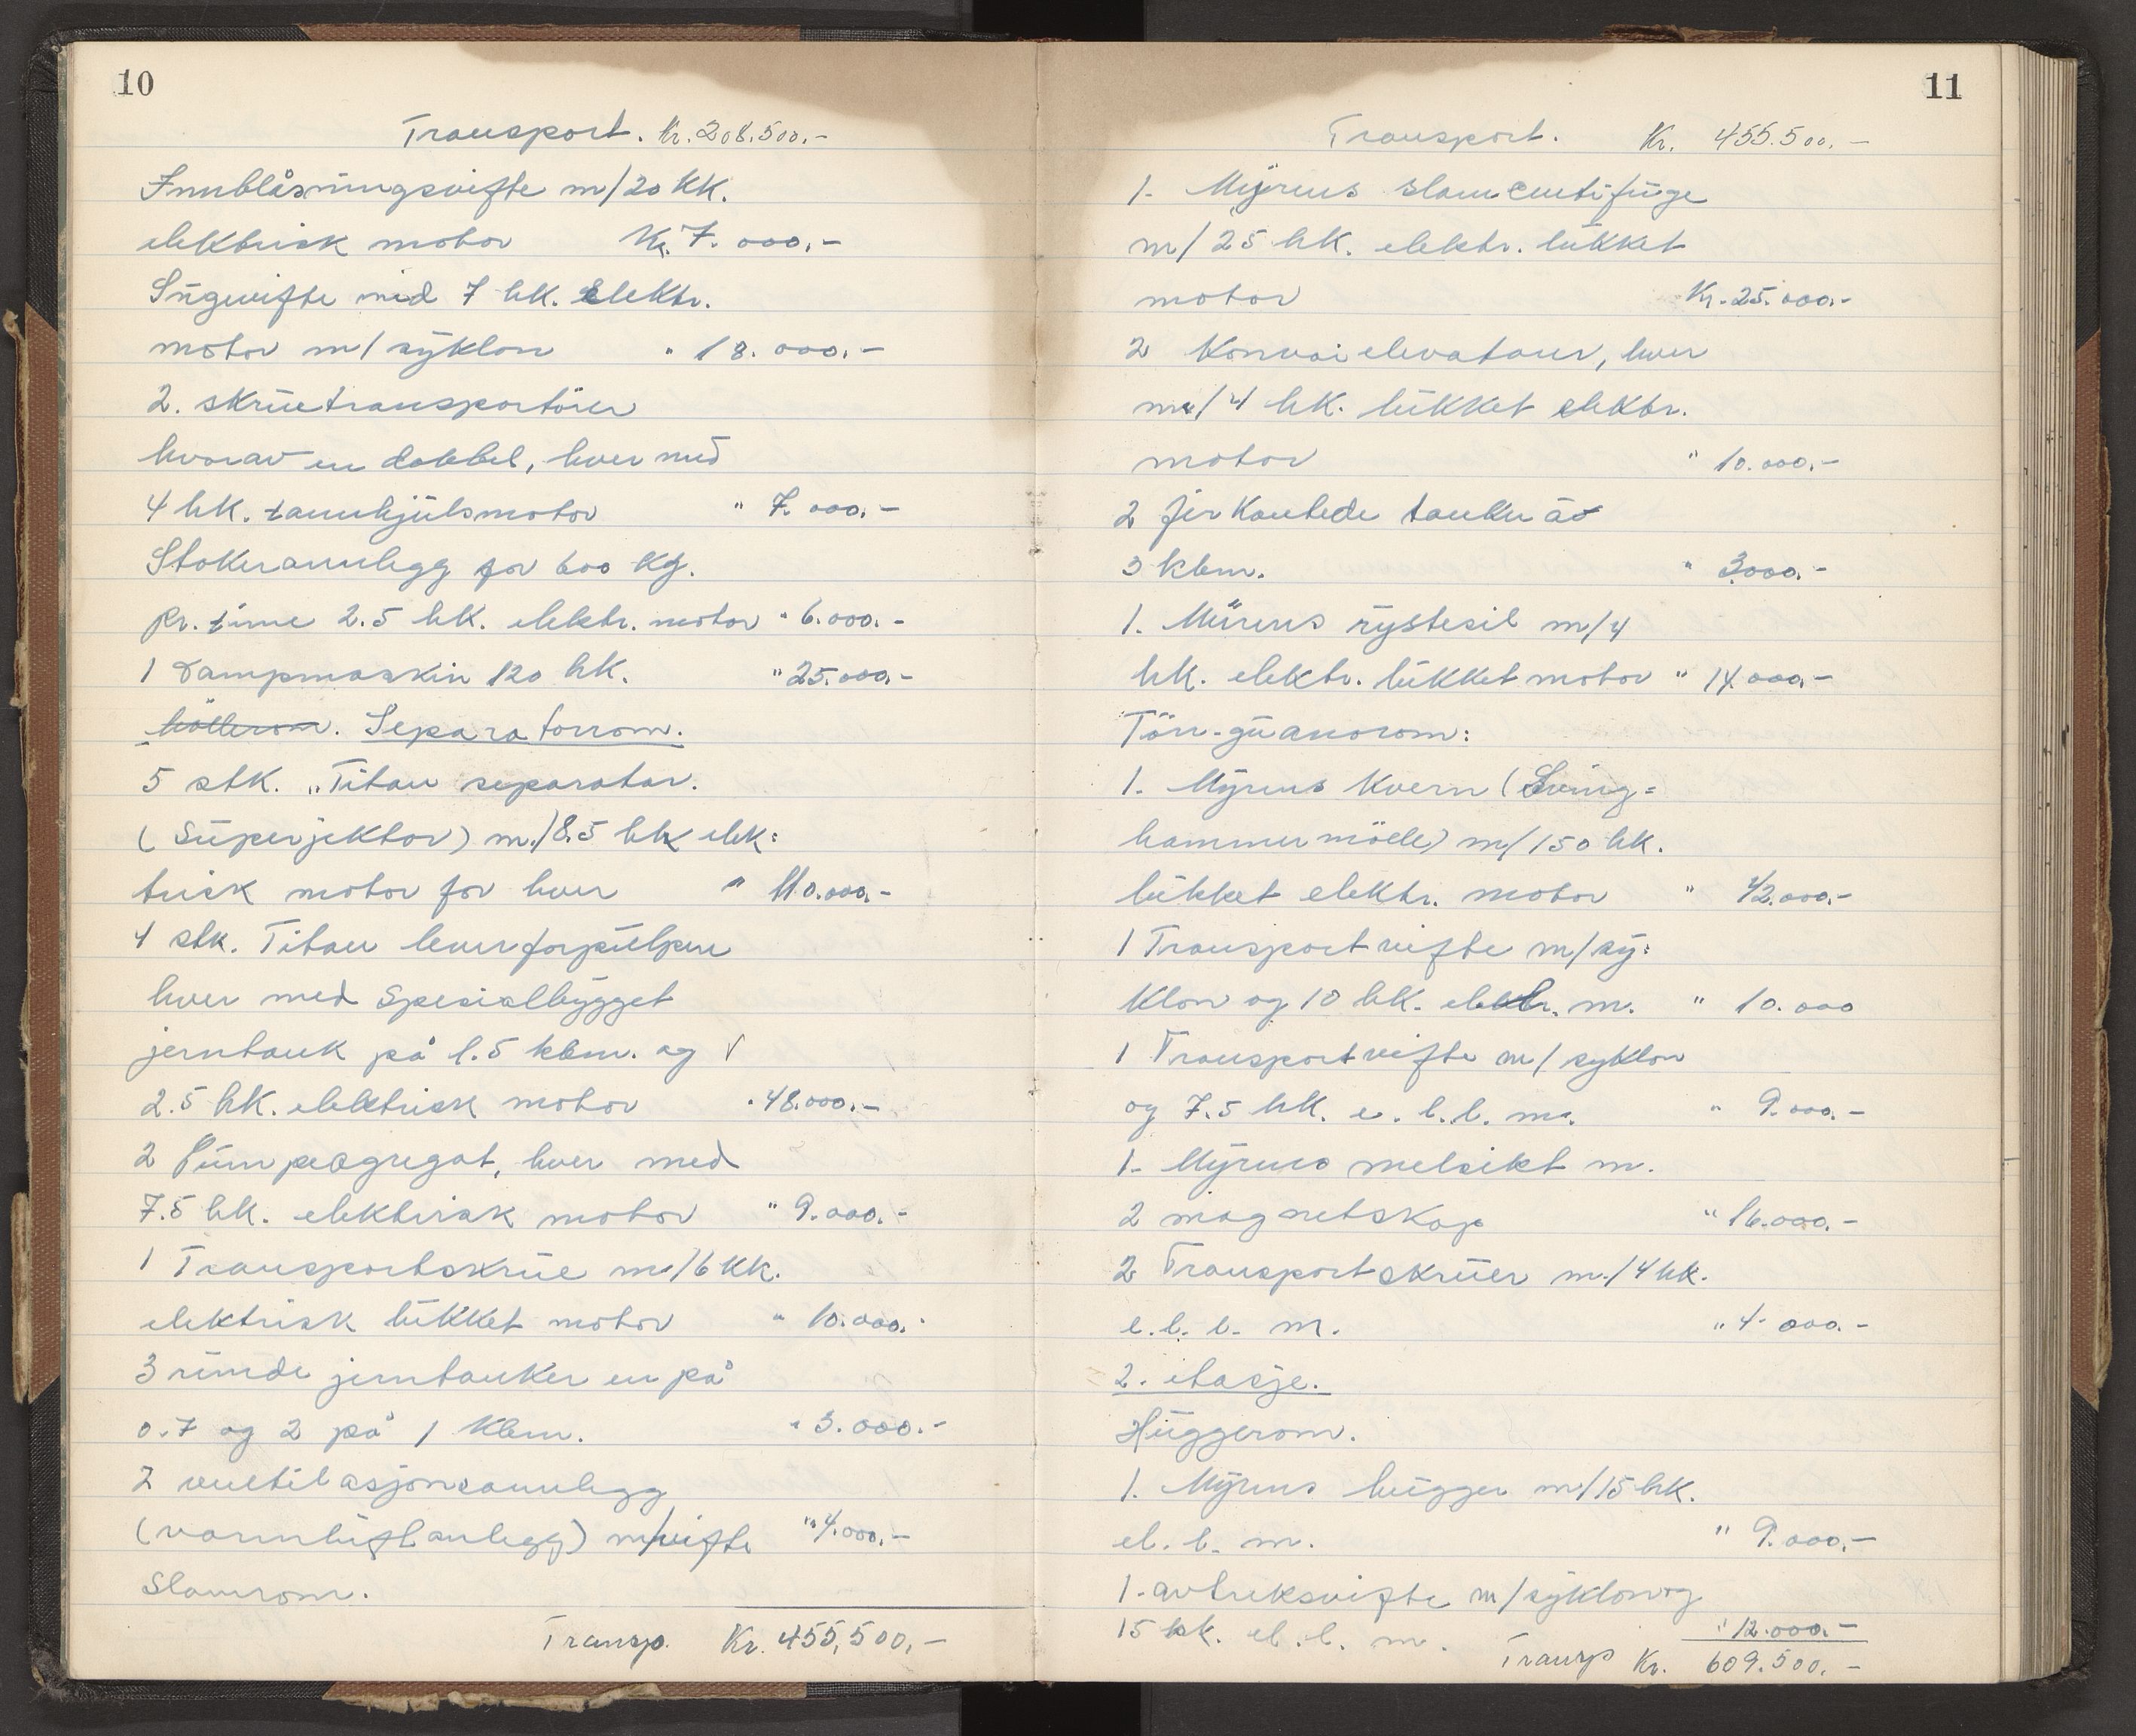 10
Transport. Kr. 208.500.-
Innblåsningsvifte m/20 hk.
elektrisk motor Kr. 7.000.-
Sugevifte med 7 hk. elektr.
motor m/syklon " 18.000.-
2. skruetransportörer
hvorav en dobbel, hver med
4 hk. tannhjulsmotor " 7.000.-
Stokerannlegg for 600 kg.
pr. time 2.5 hk. elektr. motor " 6.000.-
1 Dampmaskin 120 hk. " 25.000.-
Separatorrom.
5 stk. "Titan separator.
(Superjektor) m./8.5 hk elek:
trisk motor for hver " 110.000.-
4 stk. Titan leverforpulpere
hver med spesialbygget
jerntank på 1.5 kbm. og √
2.5 hk. elektrisk motor " 48.000.-
2 Pumpeagregat, hver med
7.5 hk. elektrisk motor " 9.000.-
1 Transportskrue m/6 hk.
elektrisk lukket motor " 10.000.-
3 runde jerntanker en på
0.7 og 2 på 1 kbm. " 3.000.-
2 ventilasjonsannlegg
(varmluftanlegg) m/vifte " 4.000.-
Slamrom.
Transp. Kr. 455,500,-
11
Transport. Kr. 455.500.-
1. Myrens slamcentifuge
m/25 hk. elektr. lukket
motor Kr. 25.000.-
2 Konvoielevatorer, hver
m/4 hk. lukket elektr.
motor " 10.000.-
2 firkantede tanker á
3 kbm. " 3000.-
1. Murens rystesil m/4
hk. elektr. lukket motor " 14.000.-
Törr-guanorom:
1. Myrens Kvern (Sving=
hammermölle) m/150 hk.
lukket elektr. motor " 42.000.-
1 Transportvifte m/sy:
klon og 10 hk. elektr. m. " 10.000
1 Transportvifte m/syklon
og 7.5 hk. e. l. l. m. " 9.000.-
1. Myrens melsikt m.
2 magnetskap " 16.000.-
2 Transportskruer m./4 hk.
e. l. l. m. " 4.000.-
2. etasje.
Huggerom.
1. Myrens hugger m/15 hk.
el. l. m. " 9.000.-
1. avtreksvifte m/syklon og
15 hk. el. l. m. " 12.000.-
Transp Kr. 609.500.-